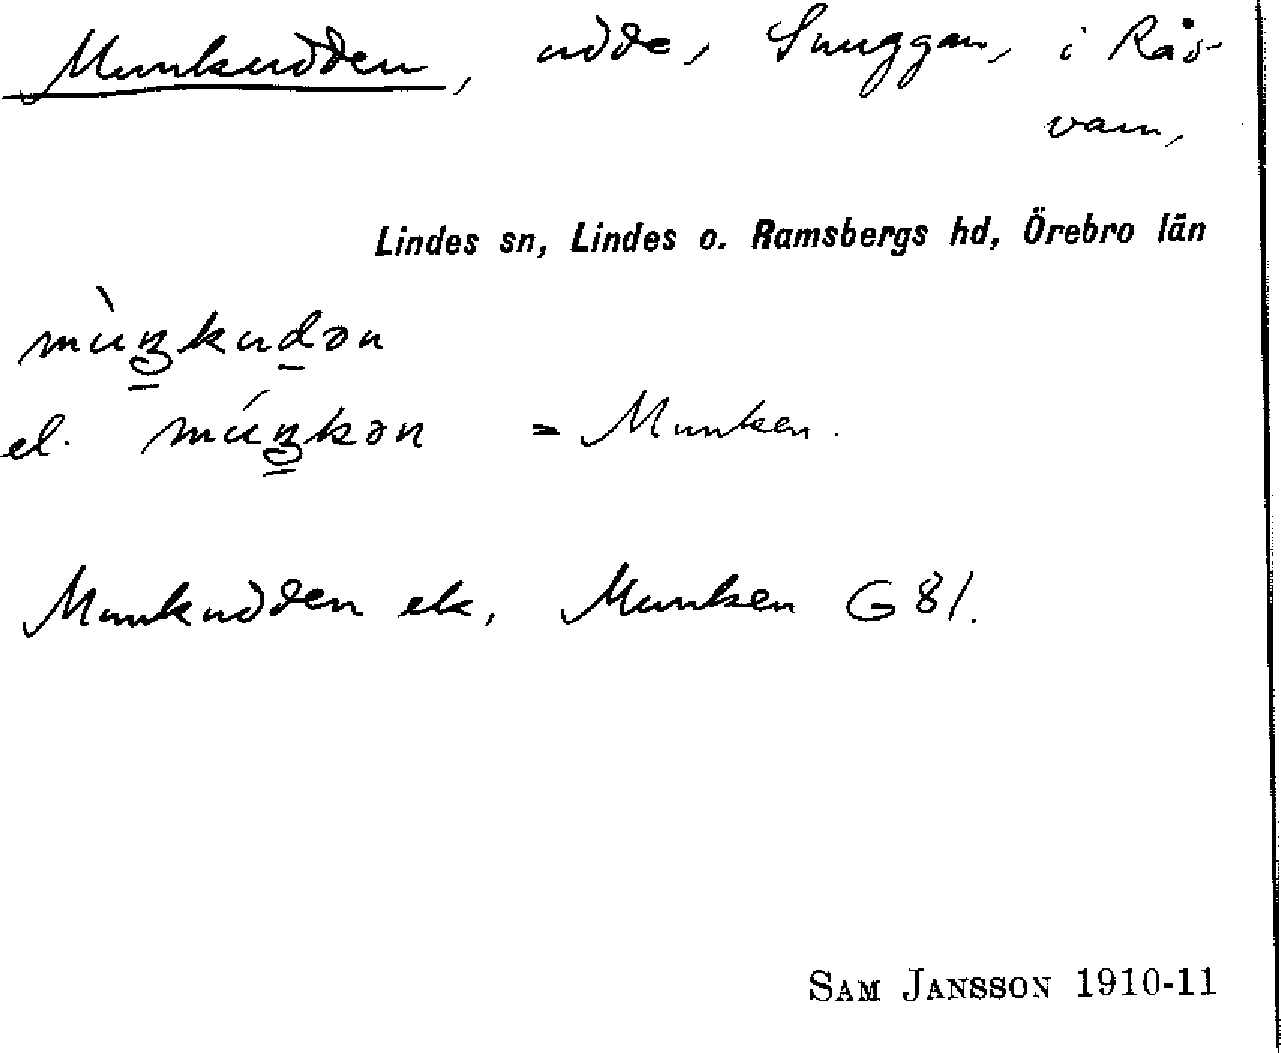 Munkudden, udde, Snuggan, i Rås-
vam,
Lindes sn, Lindes o. Ramsbergs hd, Örebro län
mùŋkudən
el. múŋkən = Munken.
Munkudden ek, Munken G 81.
SAM JANSSON 1910-11